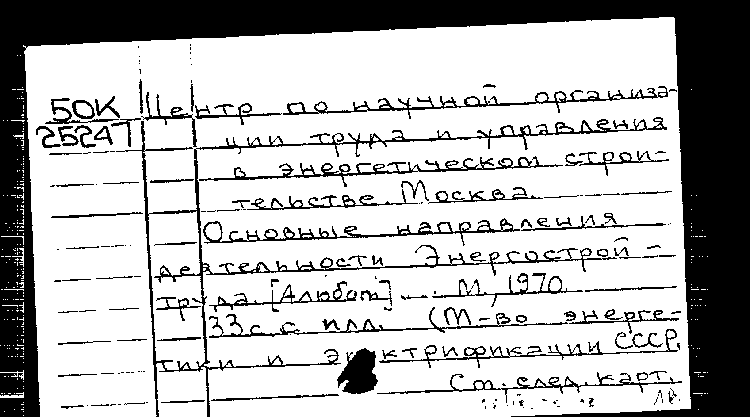 50К Центр по научной организа-
25247 ции труда и управления
в энергетическом строи-
тельстве. Москва.
Основные направления
деятельности Энергострой-
труда. [Альбом]... М., 1970.
33с. с илл. (М-во энерге-
тики и электрификации СССР.
См. след. карт.